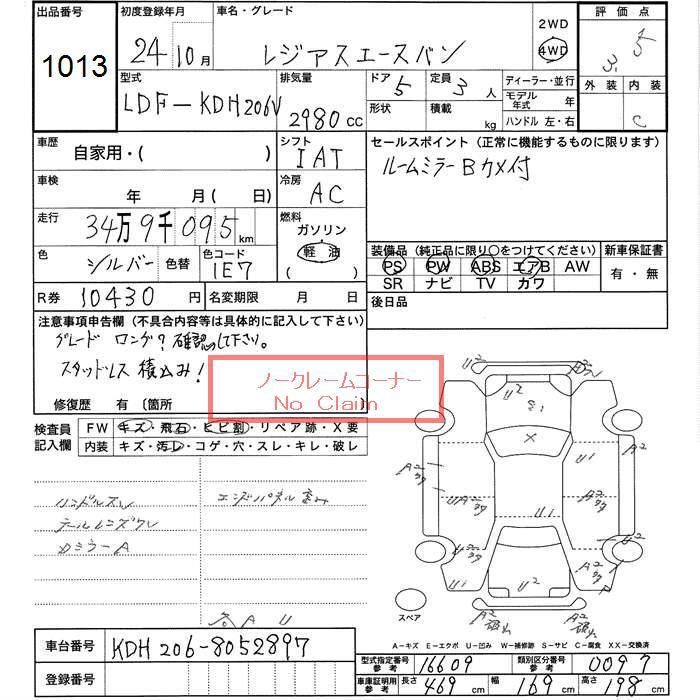 出品番号 初度登録年月 車名・グレード 2WD 評価点
1013 24年10月 レジアスエースバン 4WD 3.5
型式 排気量 ドア 5 定員 3人 ディーラー・並行 外装 内装
LDF-KDH206V 2980cc 形状 積載 kg モデル年式 年 C
ハンドル 左・右
車歴 自家用・( ) シフト IAT セールスポイント (正常に機能するものに限ります)
ルームミラーBカメ付
車検 年 月 (日) 冷房 AC
走行 34万9千095km 燃料 ガソリン
軽油
( )
色 シルバー 色替 色コード 1E7
装備品 (純正品に限り○をつけてください) 新車保証書
PS PW ABS エアB AW 有・無
SR ナビ TV カワ
R券 10430円 名変期限 月 日 後日品
注意事項申告欄 (不具合内容等は具体的に記入して下さい)
グレード ロング?確認して下さい。
スタッドレス積込み!
ノークレームコーナー
No Claim
修復歴 有 〔箇所
検査員記入欄 FW キズ・飛石・ヒビ割・リペア跡・X要
内装 キズ・汚レ・コゲ・穴・スレ・キレ・破レ
ハンドルスレ エンジパネル歪み
テールレンズワレ
ミラーA
U2
U2
X
U1
A2
UA2
U1
U1
U2
スペア
A－キズ E－エクボ U－凹み W－補修跡 S－サビ C－腐食 XX－交換済
車台番号 KDH206-8052897
登録番号
型式指定番号 参考 16609 類別区分番号 参考 0097
車庫証明用 参考 長さ 469cm 幅 169cm 高さ 198cm